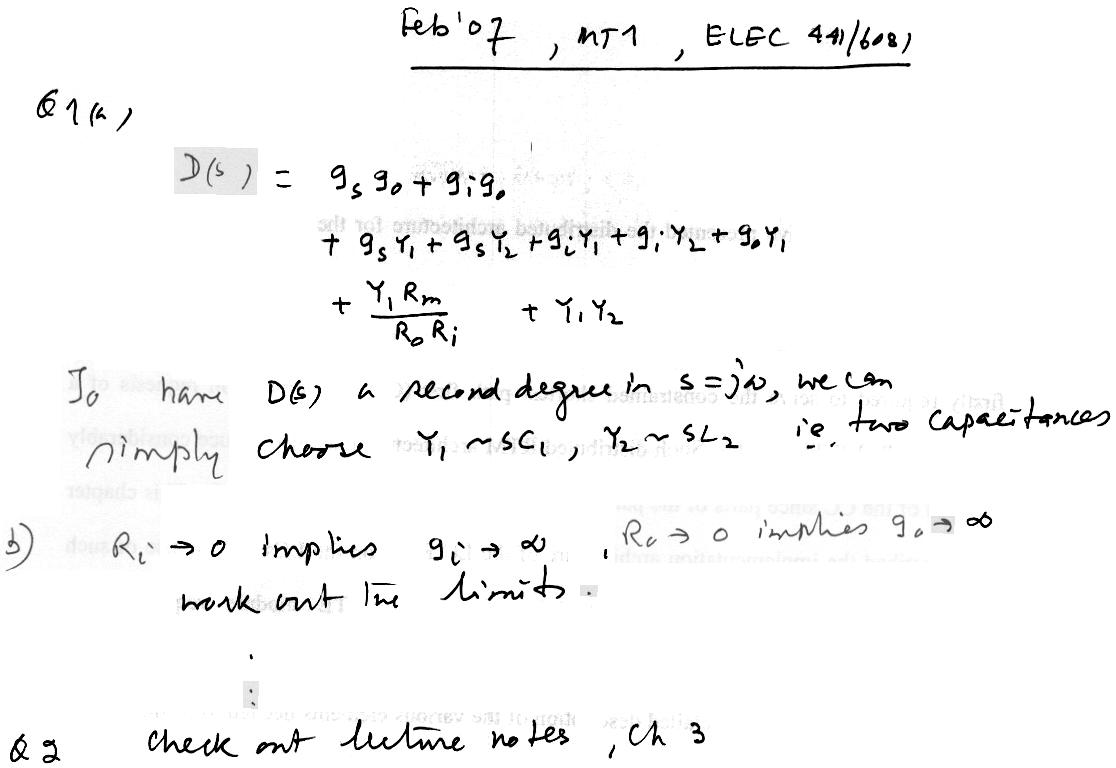 Feb'07, MT1, ELEC 441/6081
Q1(a)
D(s) = g_s g_o + g_i g_o
+ g_s Y_1 + g_s Y_2 + g_i Y_1 + g_i Y_2 + g_o Y_1
+ Y_1 R_m / R_o R_i + Y_1 Y_2
To have D(s) a second degree in s=jω, we can
simply choose Y_1 ~ sC_1, Y_2 ~ sL_2 ie, two capacitances
b) R_i → 0 implies g_i → ∞, R_o → 0 implies g_o → ∞
work out the limits.
Q2 Check out lecture notes, Ch 3